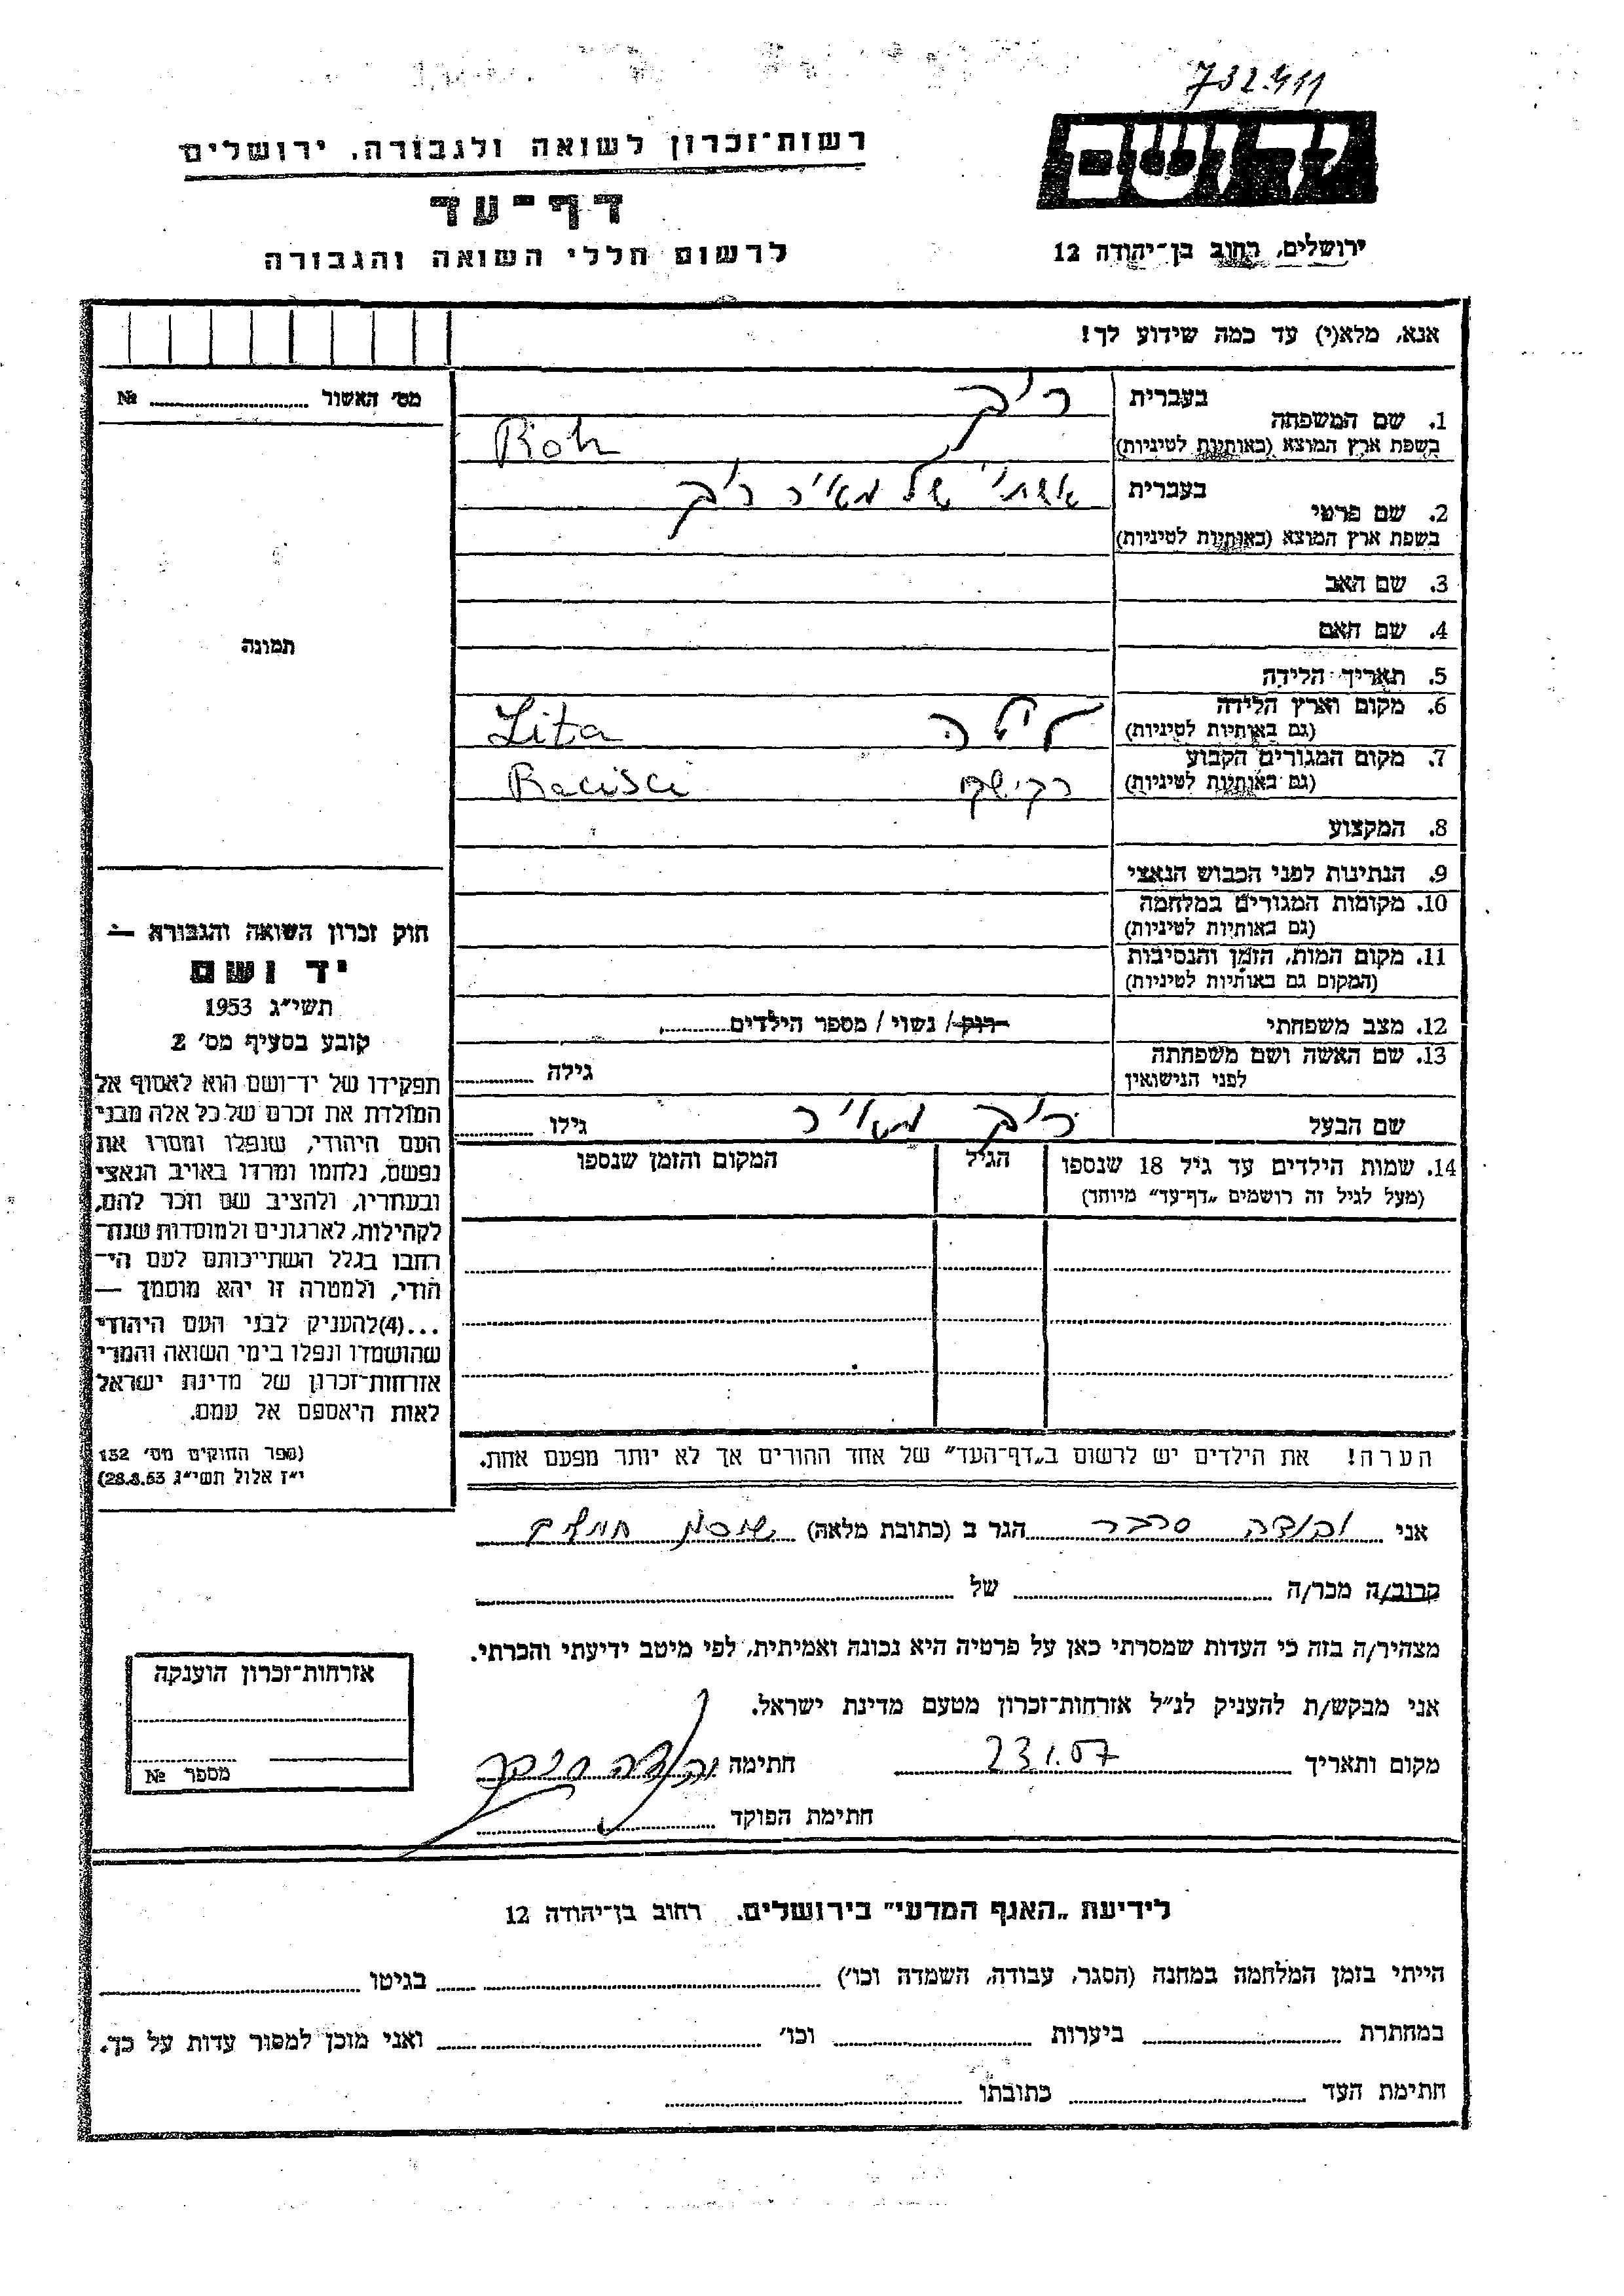 732411
רשות־זכרון לשואה ולגבורה, ירושלים
יד ושם
דף־עד
לרשום חללי השואה והגבורה
ירושלים, רחוב בן־יהודה 12
אנא, מלא(י) עד כמה שידוע לך!
מס' האשור № 
1. שם המשפחה
בעברית
בשפת ארץ המוצא (באותיות לטיניות)
2. שם פרטי
בעברית
של מאיר
בשפת ארץ המוצא (באותיות לטיניות)
3. שם האב
4. שם האם
5. תאריך הלידה
6. מקום וארץ הלידה
(גם באותיות לטיניות)
ליטה Lita
7. מקום המגורים הקבוע
(גם באותיות לטיניות)
8. המקצוע
9. הנתינות לפני הכבוש הנאצי
10. מקומות המגורים במלחמה
(גם באותיות לטיניות)
11. מקום המות, הזמן והנסיבות
(המקום גם באותיות לטיניות)
12. מצב משפחתי רוק / נשוי / מספר הילדים
13. שם האשה ושם משפחתה
לפני הנישואין
גילה
שם הבעל
מאיר
גילו
14. שמות הילדים עד גיל 18 שנספו
(מעל לגיל זה רושמים „דף־עד” מיוחד)
הגיל
המקום והזמן שנספו
הערה! את הילדים יש לרשום ב„דף־העד” של אחד ההורים אך לא יותר מפעם אחת.
תמונה
חוק זכרון השואה והגבורה —
יד ושם
תשי״ג 1953
קובע בסעיף מס' 2
תפקידו של יד־ושם הוא לאסוף אל
המולדת את זכרם של כל אלה מבני
העם היהודי, שנפלו ומסרו את
נפשם, נלחמו ומרדו באויב הנאצי
ובעוזריו, ולהציב שם וזכר להם,
לקהילות, לארגונים ולמוסדות שנח־
רחבו בגלל השתייכותם לעם הי־
הודי, ולמטרה זו יהא מוסמך —
...(4)להעניק לבני העם היהודי
שהושמדו ונפלו בימי השואה והמרי
אזרחות־זכרון של מדינת ישראל
לאות היאספם אל עמם.
(ספר החוקים מס' 132
י״ז אלול תשי״ג 28.8.53)
אני הגר ב (כתובת מלאה)
קרוב/ה מכר/ה של
מצהיר/ה בזה כי העדות שמסרתי כאן על פרטיה היא נכונה ואמיתית, לפי מיטב ידיעתי והכרתי.
אני מבקש/ת להעניק לנ״ל אזרחות־זכרון מטעם מדינת ישראל.
מקום ותאריך 23.1.57 חתימה
חתימת הפוקד
אזרחות־זכרון הוענקה
מספר №
לידיעת „האגף המדעי” בירושלים. רחוב בן־יהודה 12
הייתי בזמן המלחמה במחנה (הסגר, עבודה, השמדה וכו') בגיטו
במחתרת ביערות וכו' ואני מוכן למסור עדות על כך.
חתימת העד כתובתו